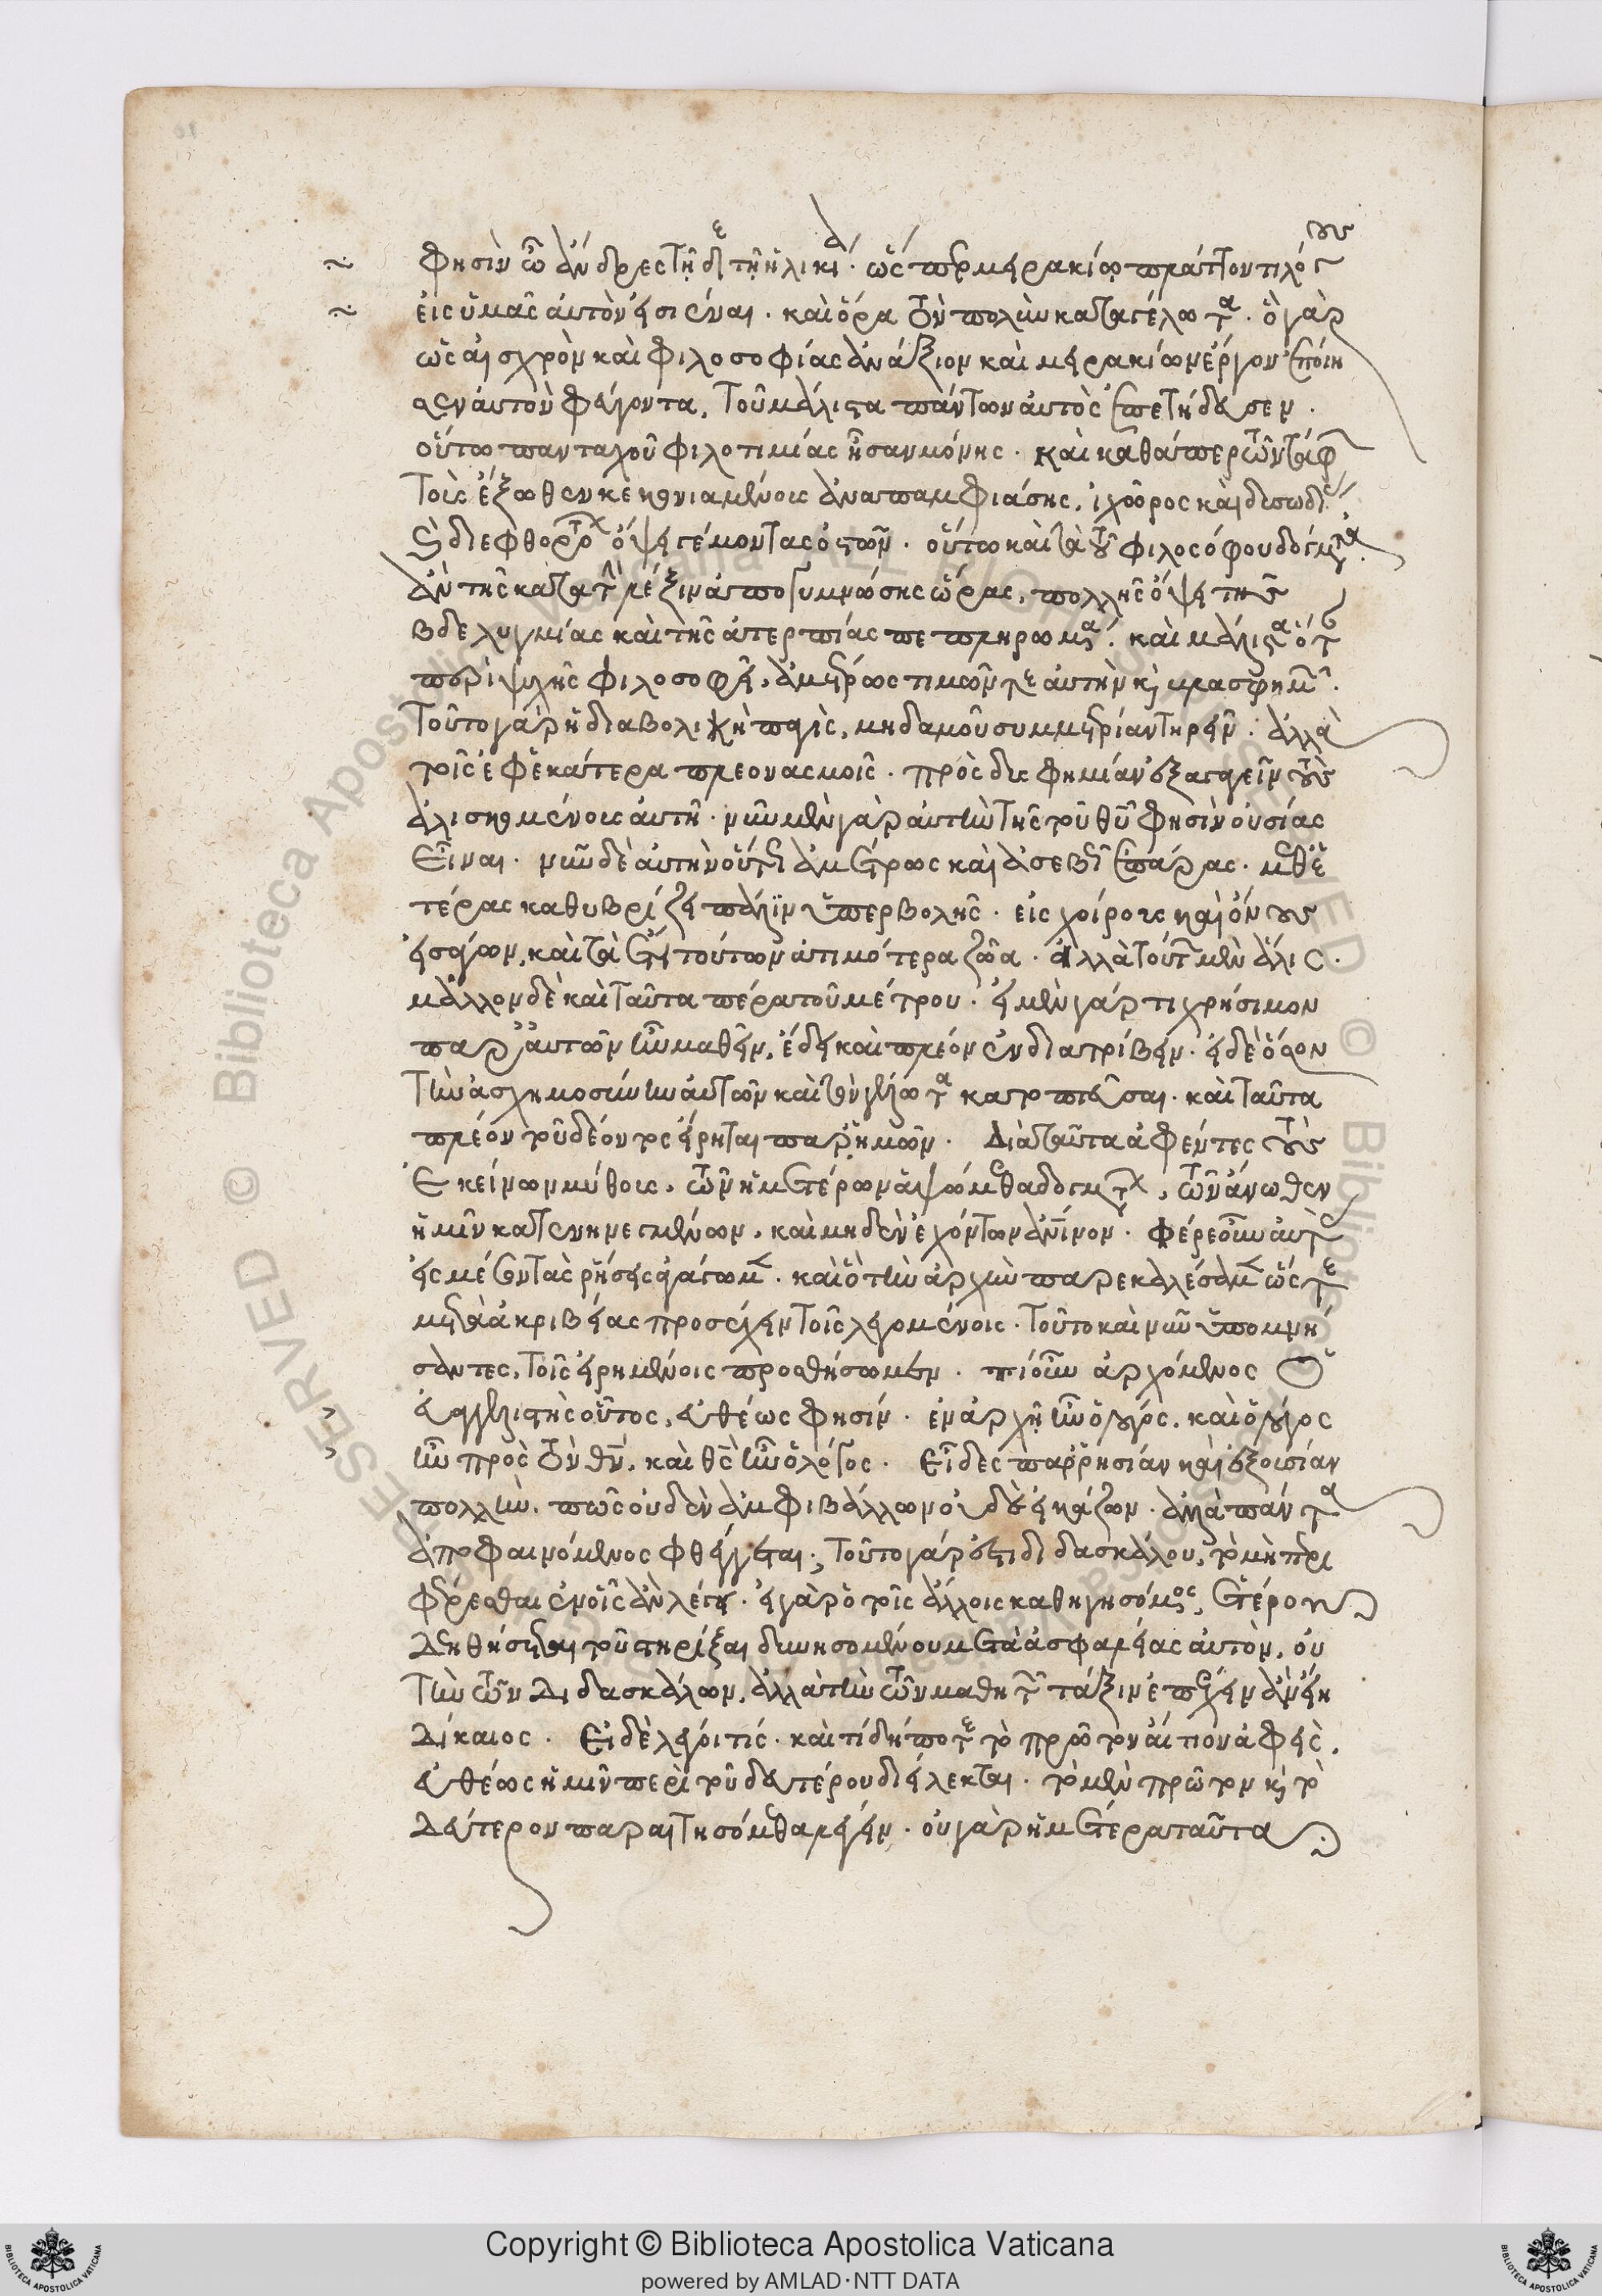 φησὶν ὦ ἄνδρες τῇδε τῇ ἡλικίᾳ· ὥσπερ μειρακίῳ πλάττοντι λόγους
εἰς ὑμᾶς αὐτὸν εἰσιέναι· καὶ ὅρα τὸν πολὺν καταγέλωτα· ὃ γὰρ
ὡς αἰσχρὸν καὶ φιλοσοφίας ἀνάξιον καὶ μειρακίων ἔργον ἐποίη
σεν αὐτὸν φεύγοντα, τοῦ μάλιστα πάντων αὐτὸς ἐπετήδευσεν·
οὕτω πανταχοῦ φιλοτιμίας ἦσαν μόνης· καὶ καθάπερ τῶν τάφων
τοὺς ἔξωθεν κεκονιαμένους ἂν ἀπαμφιάσῃς, ἰχῶρος καὶ δυσωδίας
καὶ διεφθορότων ὄψει γέμοντας ὀστῶν· οὕτω καὶ τὰ τοῦ φιλοσόφου δόγματα
ἂν τῆς κατὰ τὴν λέξιν ἀπογυμνώσῃς ὥρας, πολλῆς ὄψει τῆς
βδελυγμίας καὶ τῆς ἀτερπίας πεπληρωμένα· καὶ μάλιστα ὅταν
περὶ ψυχῆς φιλοσοφῇ, ἀμέτρως τιμῶν τε αὐτὴν καὶ βλασφημῶν·
τοῦτο γὰρ ἡ διαβολικὴ παγὶς, μηδαμοῦ συμμετρίαν τηρεῖν· ἀλλὰ
τοῖς ἐφ' ἑκάτερα πλεονασμοῖς· πρὸς δυσφημίαν ἐξαγαγεῖν τοὺς
ἁλισκομένους αὐτῇ· νῦν μὲν γὰρ αὐτὴν τῆς τοῦ θυ φησὶν οὐσίας
εἶναι· νῦν δὲ αὐτὴν οὕτως ἀμέτρως καὶ ἀσεβῶς ἐπάρας· μεθ' ἑ
τέρας καθυβρίζει πάλιν ὑπερβολῆς· εἰς χοίρους καὶ ὄνους
εἰσάγων, καὶ τὰ ἔτι τούτων ἀτιμότερα ζῶα· ἀλλὰ τούτων μὲν ἅλις·
μᾶλλον δὲ καὶ ταῦτα πέρα τοῦ μέτρου· εἰ μὲν γάρ τι χρήσιμον
παρ' αὐτῶν ἦν μαθεῖν, ἔδει καὶ πλέον ἐνδιατρίβειν· εἰ δὲ ὅσον
τὴν ἀσχημοσύνην αὐτῶν καὶ τὸν γέλωτα κατοπτεῦσαι· καὶ ταῦτα
πλέον τοῦ δέοντος εἴρηται παρ' ἡμῶν· Διὰ ταῦτα ἀφέντες τοὺς
ἐκείνων μύθους, τῶν ἡμετέρων ἁψώμεθα δογμάτων, τῶν ἄνωθεν
ἡμῖν κατενηνεγμένων, καὶ μηδὲν ἐχόντων ἀνινον· φέρε οὖν αὐτὰς
εἰς μέσον τὰς ῥήσεις ἀγάγωμεν· καὶ ὃ τὴν ἀρχὴν παρεκαλέσαμεν ὥστε
μετὰ ἀκριβείας προσέχειν τοῖς λεγομένοις· τοῦτο καὶ νῦν ὑπομνή
σαντες, τοῖς εἰρημένοις προσθήσωμεν· τί οὖν ἀρχόμενος ὁ
εὐαγγελιστὴς οὗτος, εὐθέως φησίν· ἐν ἀρχῇ ἦν ὁ λόγος, καὶ ὁ λόγος
ἦν πρὸς τὸν θν, καὶ θς ἦν ὁ λόγος· Εἶδες παρρησίαν καὶ ἐξουσίαν
πολλήν. πῶς οὐδὲν ἀμφιβάλλων οὐδὲ εἰκάζων· ἀλλὰ πάντα
ἀποφαινόμενος φθέγγεται; τοῦτο γάρ ἐστι διδασκάλου, τὸ μὴ περι
φέρεσθαι ἐν οἷς ἂν λέγῃ· εἰ γὰρ ὁ τοὺς ἄλλους καθηγησόμενος, ἑτέρου
δεηθήσεται τοῦ στηρίξαι δυνησομένου μετὰ ἀσφαλείας αὐτὸν, οὐ
τὴν τῶν διδασκάλων, ἀλλὰ τὴν τῶν μαθητῶν τάξιν ἐπέχειν ἂν εἴη
δίκαιος· Εἰ δὲ λέγοι τίς· καὶ τί δήποτε τὸ πρῶτον αἴτιον ἀφεὶς,
εὐθέως ἡμῖν περὶ τοῦ δευτέρου διείλεκται· τὸ μὲν πρῶτον καὶ τὸ
δεύτερον παραιτησόμεθα λέγειν· οὐ γὰρ ἡμέτερα ταῦτα
Copyright © Biblioteca Apostolica Vaticana
powered by AMLAD·NTT DATA